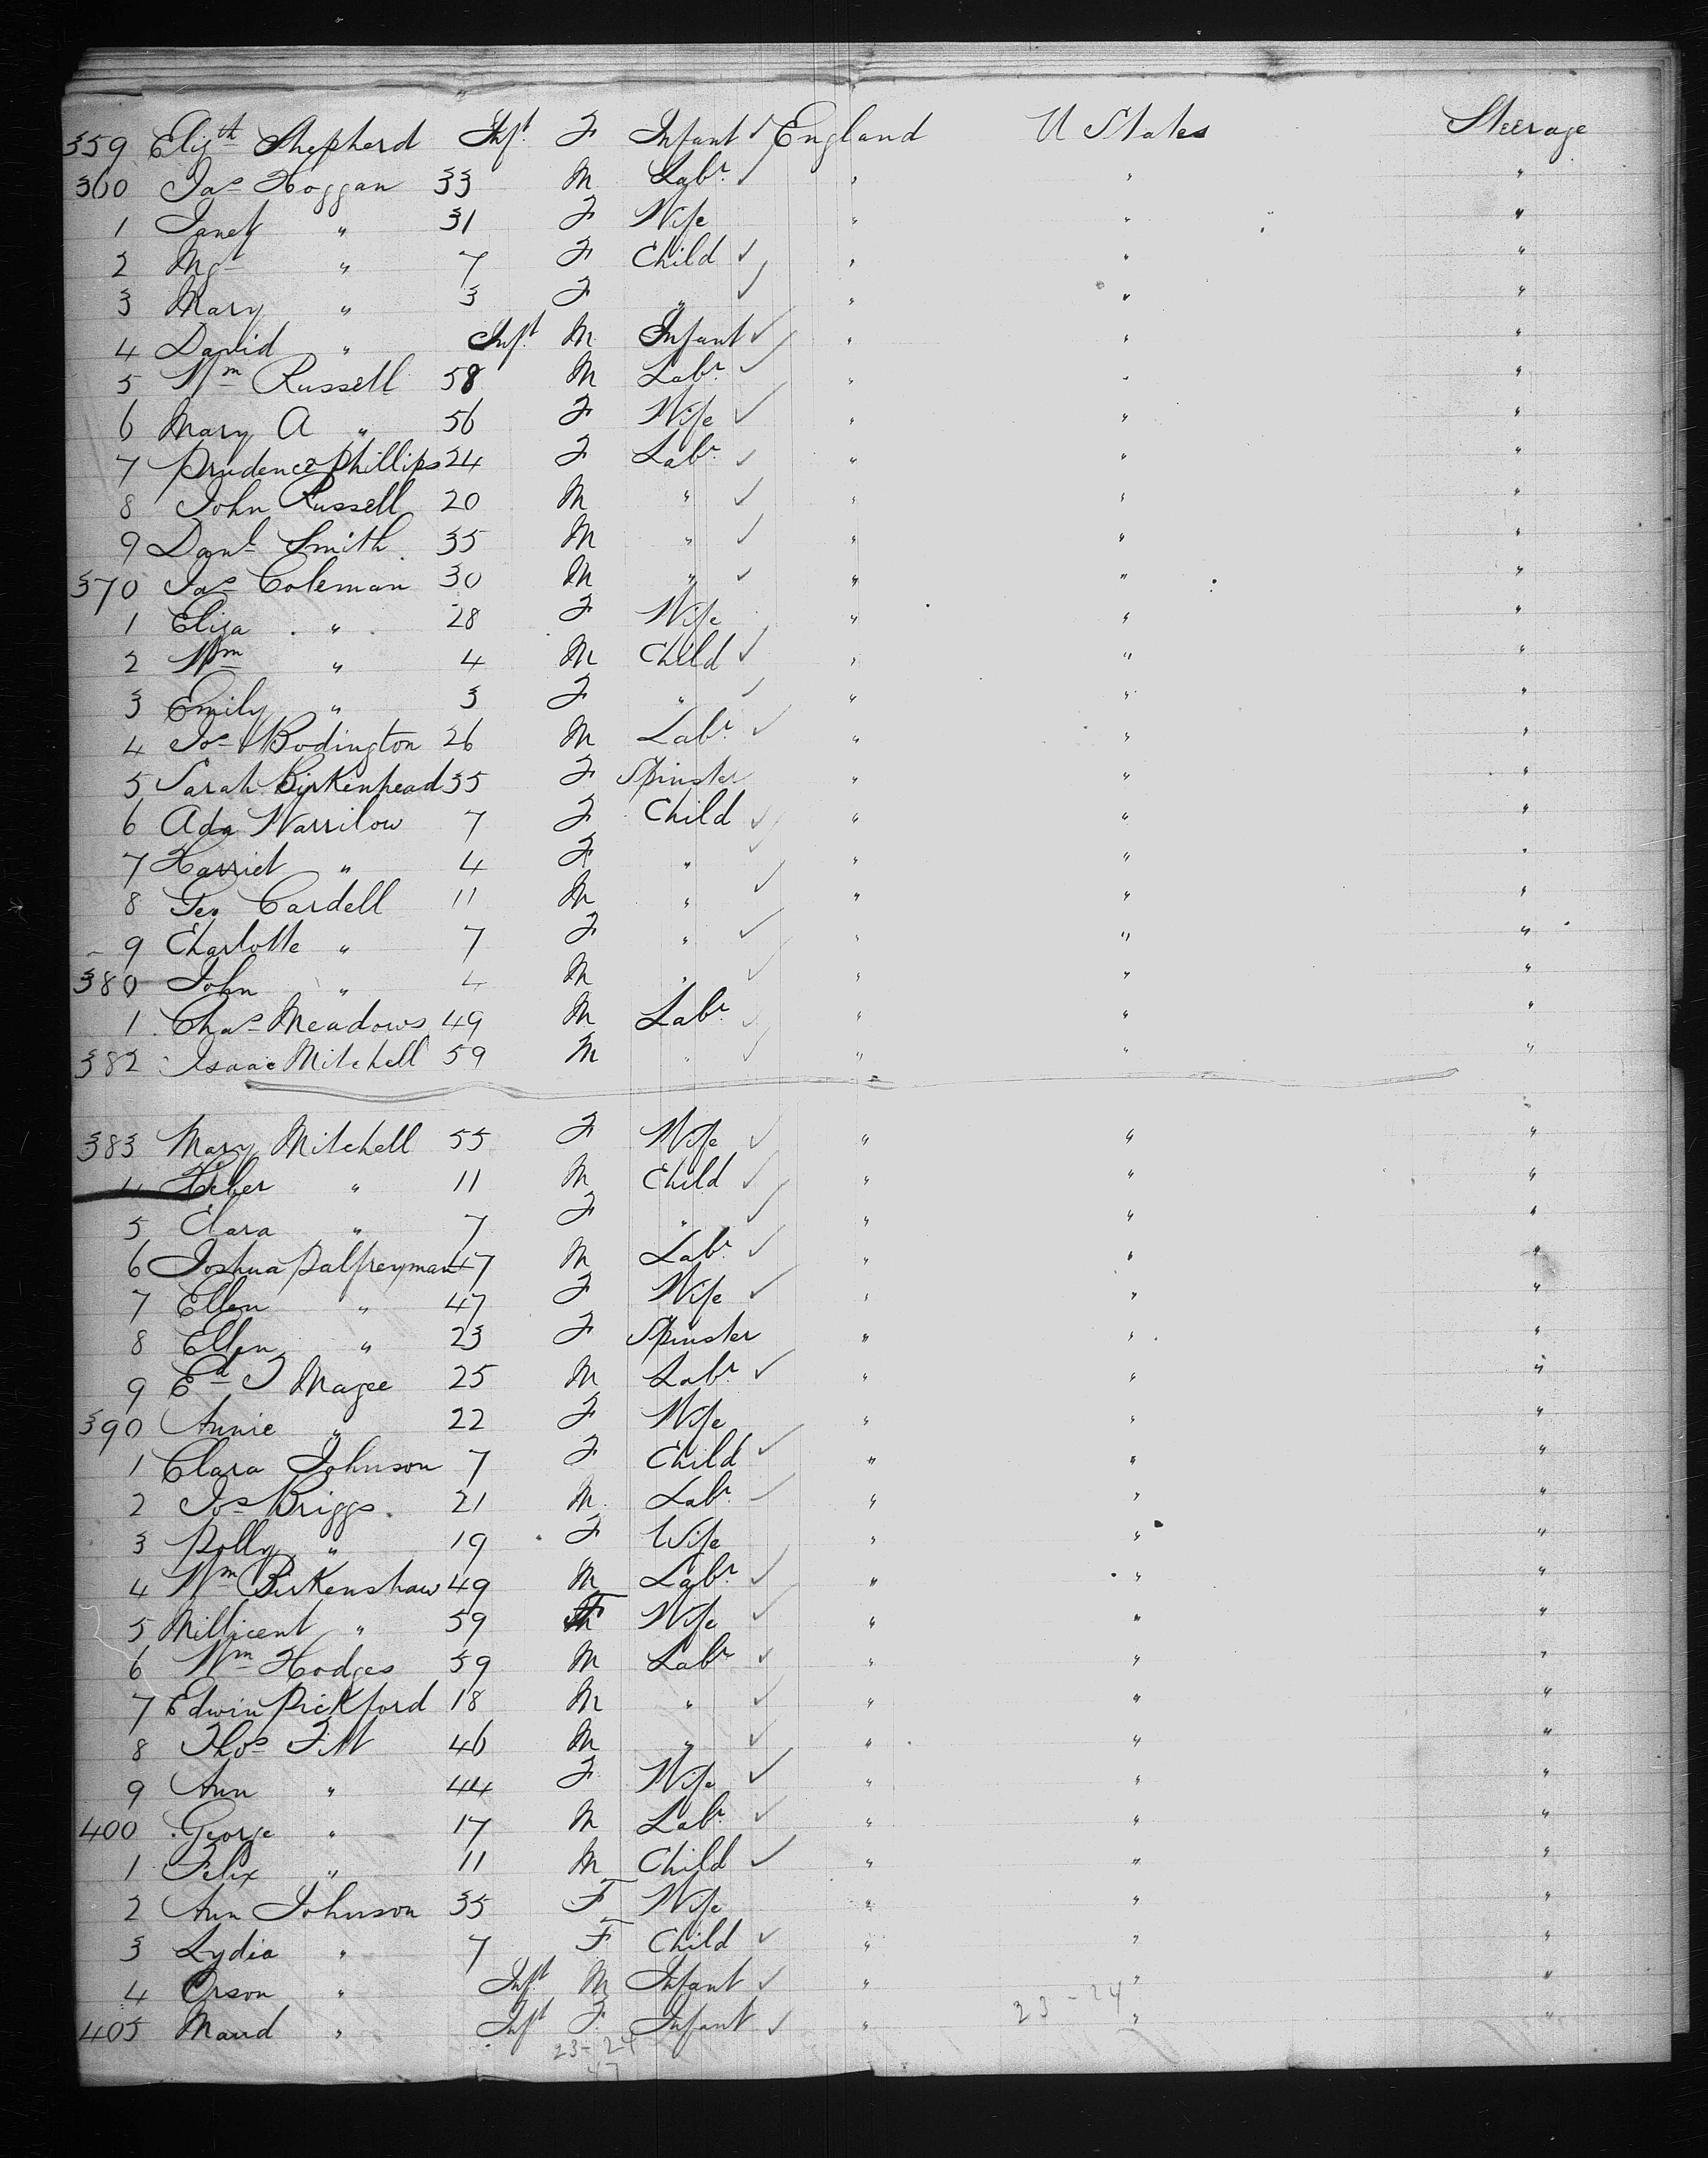 359 Elizth Shepherd Inft F Infant ✓ England U States Steerage
360 Jas Hoggan 33 M Labr ✓ " " "
1 Janet " 31 F Wife " " "
2 Mgt " 7 F Child ✓ " " "
3 Mary " 3 F " ✓ " " "
4 David " Inft M Infant ✓ " " "
5 Wm Russell 58 M Labr ✓ " " "
6 Mary A " 56 F Wife ✓ " " "
7 Prudence Phillips 24 F Labr ✓ " " "
8 John Russell 20 M " ✓ " " "
9 Danl Smith 35 M " ✓ " " "
370 Jas Coleman 30 M " ✓ " " "
1 Eliza " 28 F Wife " " "
2 Wm " 4 M Child ✓ " " "
3 Emily " 3 F " ✓ " " "
4 Jos Bodington 26 M Labr ✓ " " "
5 Sarah Birkenhead 35 F Spinster " " "
6 Ada Warrilow 7 F Child ✓ " " "
7 Harriet " 4 F " ✓ " " "
8 Geo Cardell 11 M " ✓ " " "
9 Charlotte " 7 F " ✓ " " "
380 John " 4 M " ✓ " " "
1 Chas Meadows 49 M Labr ✓ " " "
382 Isaac Mitchell 59 M " ✓ " " "
383 Mary Mitchell 55 F Wife ✓ " " "
4 Heber " 11 M Child ✓ " " "
5 Clara " 7 F " ✓ " " "
6 Joshua Palfreyman 47 M Labr ✓ " " "
7 Ellen " 47 F Wife ✓ " " "
8 Ellen " 23 F Spinster " " "
9 Ed J Magee 25 M Labr ✓ " " "
390 Annie " 22 F Wife " " "
1 Clara Johnson 7 F Child ✓ " " "
2 Jos Briggs 21 M Labr ✓ " " "
3 Polly " 19 F Wife " " "
4 Wm Birkenshaw 49 M Labr ✓ " " "
5 Millicent " 59 F Wife ✓ " " "
6 Wm Hodges 59 M Labr ✓ " " "
7 Edwin Pickford 18 M " ✓ " " "
8 Thos Fitt 46 M " ✓ " " "
9 Ann " 44 F Wife ✓ " " "
400 George " 17 M Labr ✓ " " "
1 Felix " 11 M Child ✓ " " "
2 Ann Johnson 35 F Wife " " "
3 Lydia " 7 F Child ✓ " " "
4 Orson " Inft M Infant ✓ " " "
23-24
405 Maud " Inft F Infant ✓ " " "
23-24
47